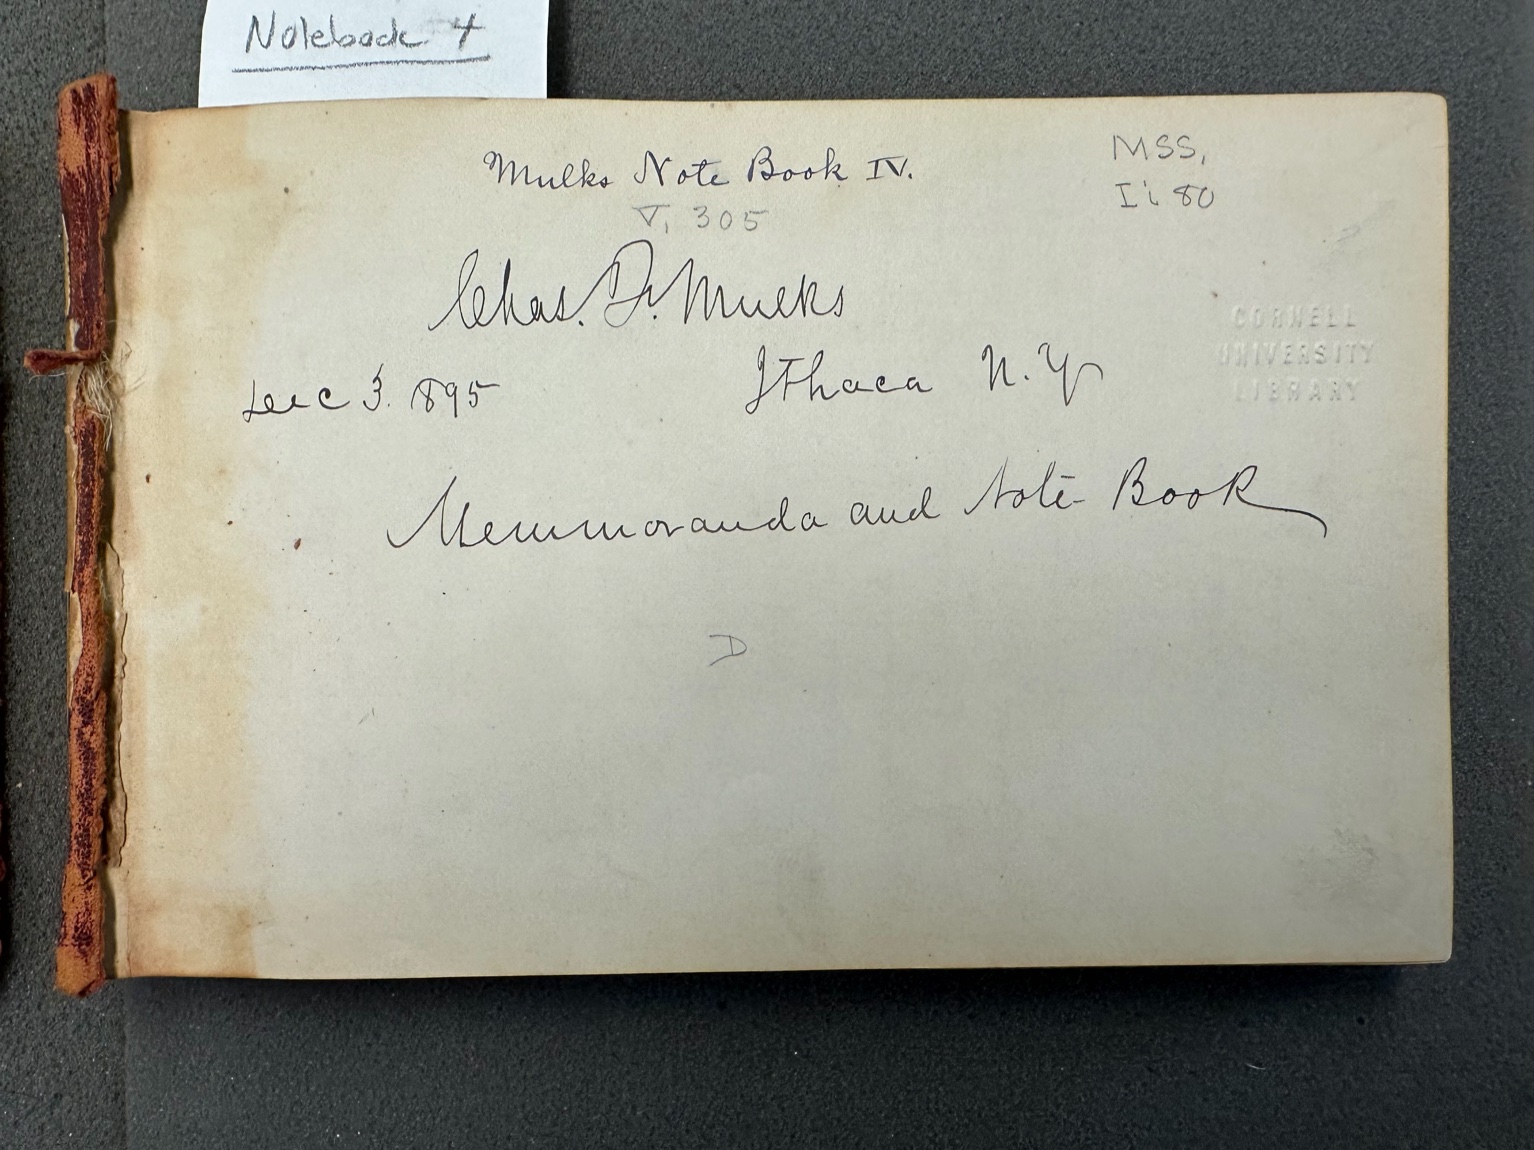 Notebook 4
Mulks Note Book IV.
MSS,
V, 305
Ii 80
Chas. D. Mulks
Dec 3. 895
Ithaca N.Y
CORNELL
UNIVERSITY
LIBRARY
Memmoranda and Note Book
D